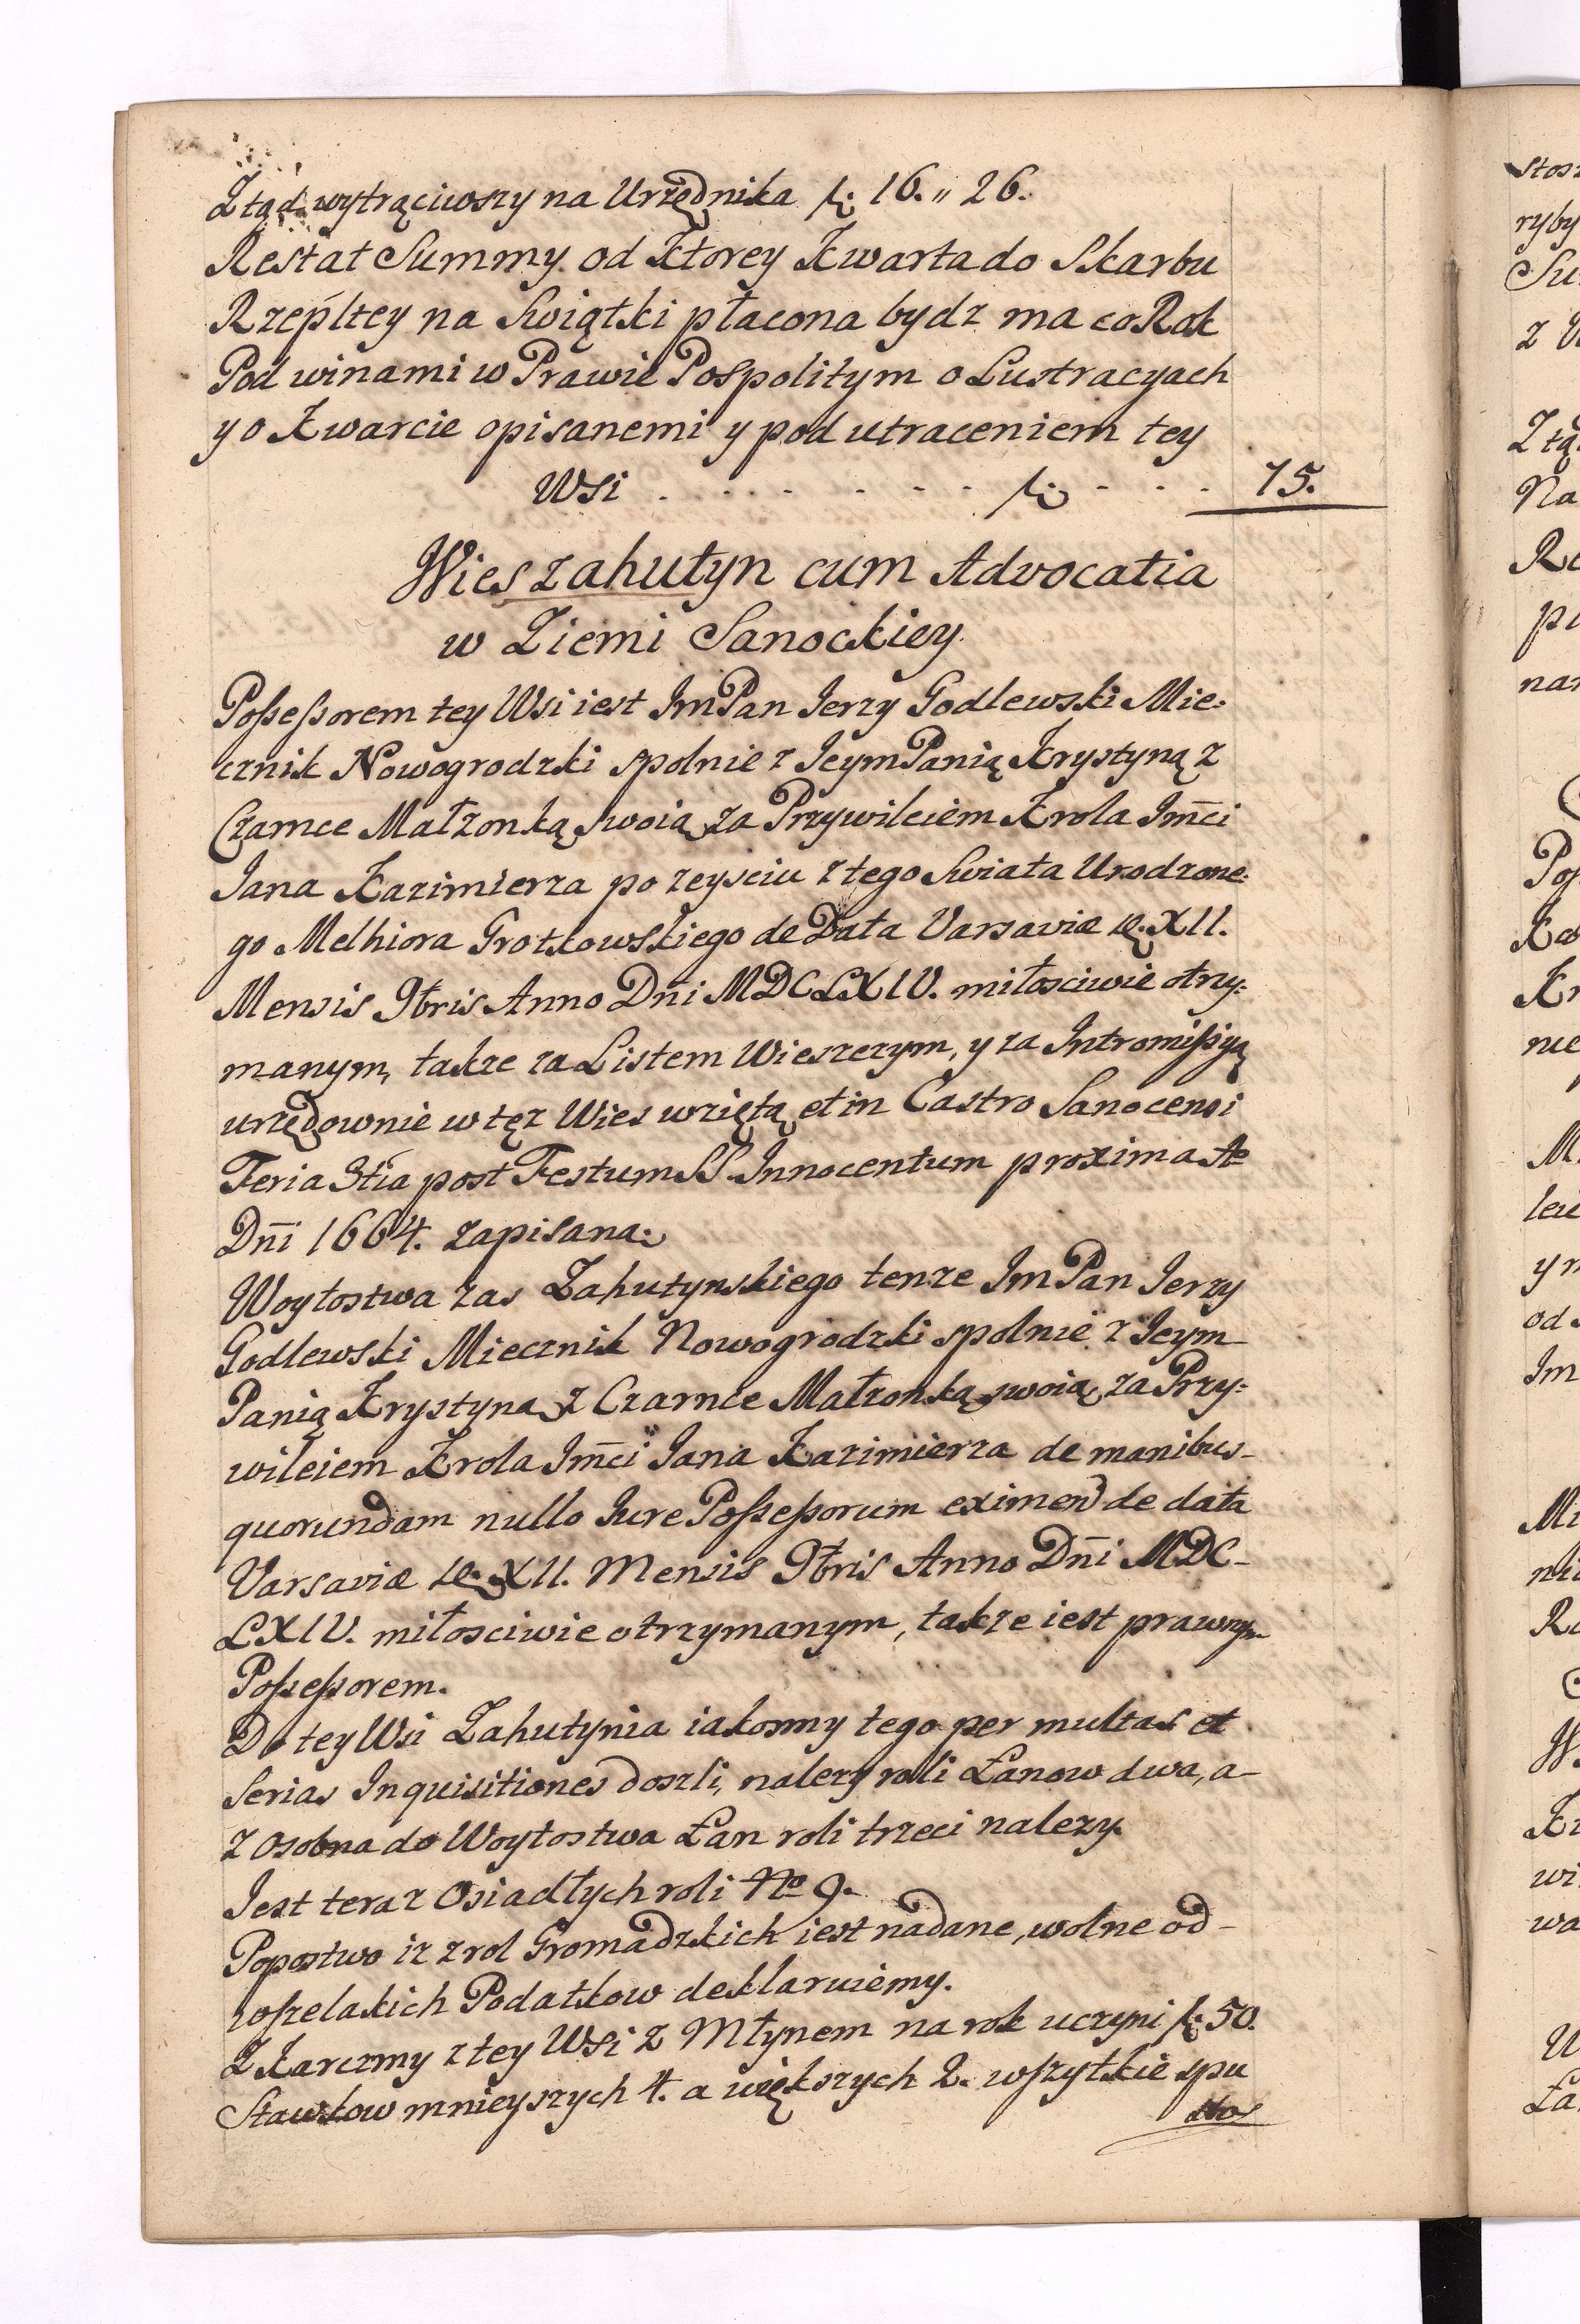 Ztąd wytrąciwszy na Urzędnika f: 16. " 26.
Restat Summy od Ktorey Kwarta do Skarbu
Rzepltey na Swiątki płacona bydz ma co Rok
Pod winami w Prawie Pospolitym o Lustracyach
y o Kwarcie opisanemi y pod utraceniem tey
Wsi . . . . . . - - - f: - - - . 15.
Wies zahutyn cum Advocatia
w Ziemi Sanockiey.
Poßeßorem tey Wsi iest Im Pan Jerzy Godlewski Mie:
cznik Nowogrodzki spolnie z Jeym Panią Krystyną z
Czarnce Małzonką swoią za Przywileiem Krola Jm̄ci
Jana Kazimierza po zeysciu z tego Swiata Urodzone:
go Melhiora Grotkowskiego de Data Varsaviæ d. XII.
Mensis 9bris Anno Dn̄i MDCLXIV. miłosciwie otrzy:
manym, takze za Listem Wieszczym, y za Intromißyą
urzędownie w tęz Wies wziętą et in Castro Sanocensi
Feria 3tia post Festum SS. Innocentum proxima Ao
Dn̄i 1664. zapisana.
Woytostwa zas Zahutynskiego tenze Im Pan Jerzy
Godlewski Miecznik Nowogrodzki spolnie z Jeym
Panią Krystyną z Czarnce Małzonką swoią, za Przy:
wileiem Krola Jm̄ci Jana Kazimierza de manibus
quorundam nullo Jure Poßeßorum eximend de data
Varsaviæ d. XII. Mensis 9bris Anno Dn̄i MDC-
LXIV. miłosciwie otrzymanym, takze iest prawnym
Poßeßorem.
Do tey Wsi Zahutynia iakosmy tego per multas et
Serias Inquisitiones doszli, nalezy roli Łanow dwa, a-
z osobna do Woytostwa Łan roli trzeci nalezy.
Jest teraz Osiadłych roli No 9.
Popostwo iz z rol Gromadzkich iest nadane, wolne od-
wßelakich Podatkow deklaruiemy.
Z Karczmy z tey Wsi z Młynem na rok uczyni f: 50.
Stawkow mnieyszych 4. a większych 2. wßytkie spu
stos